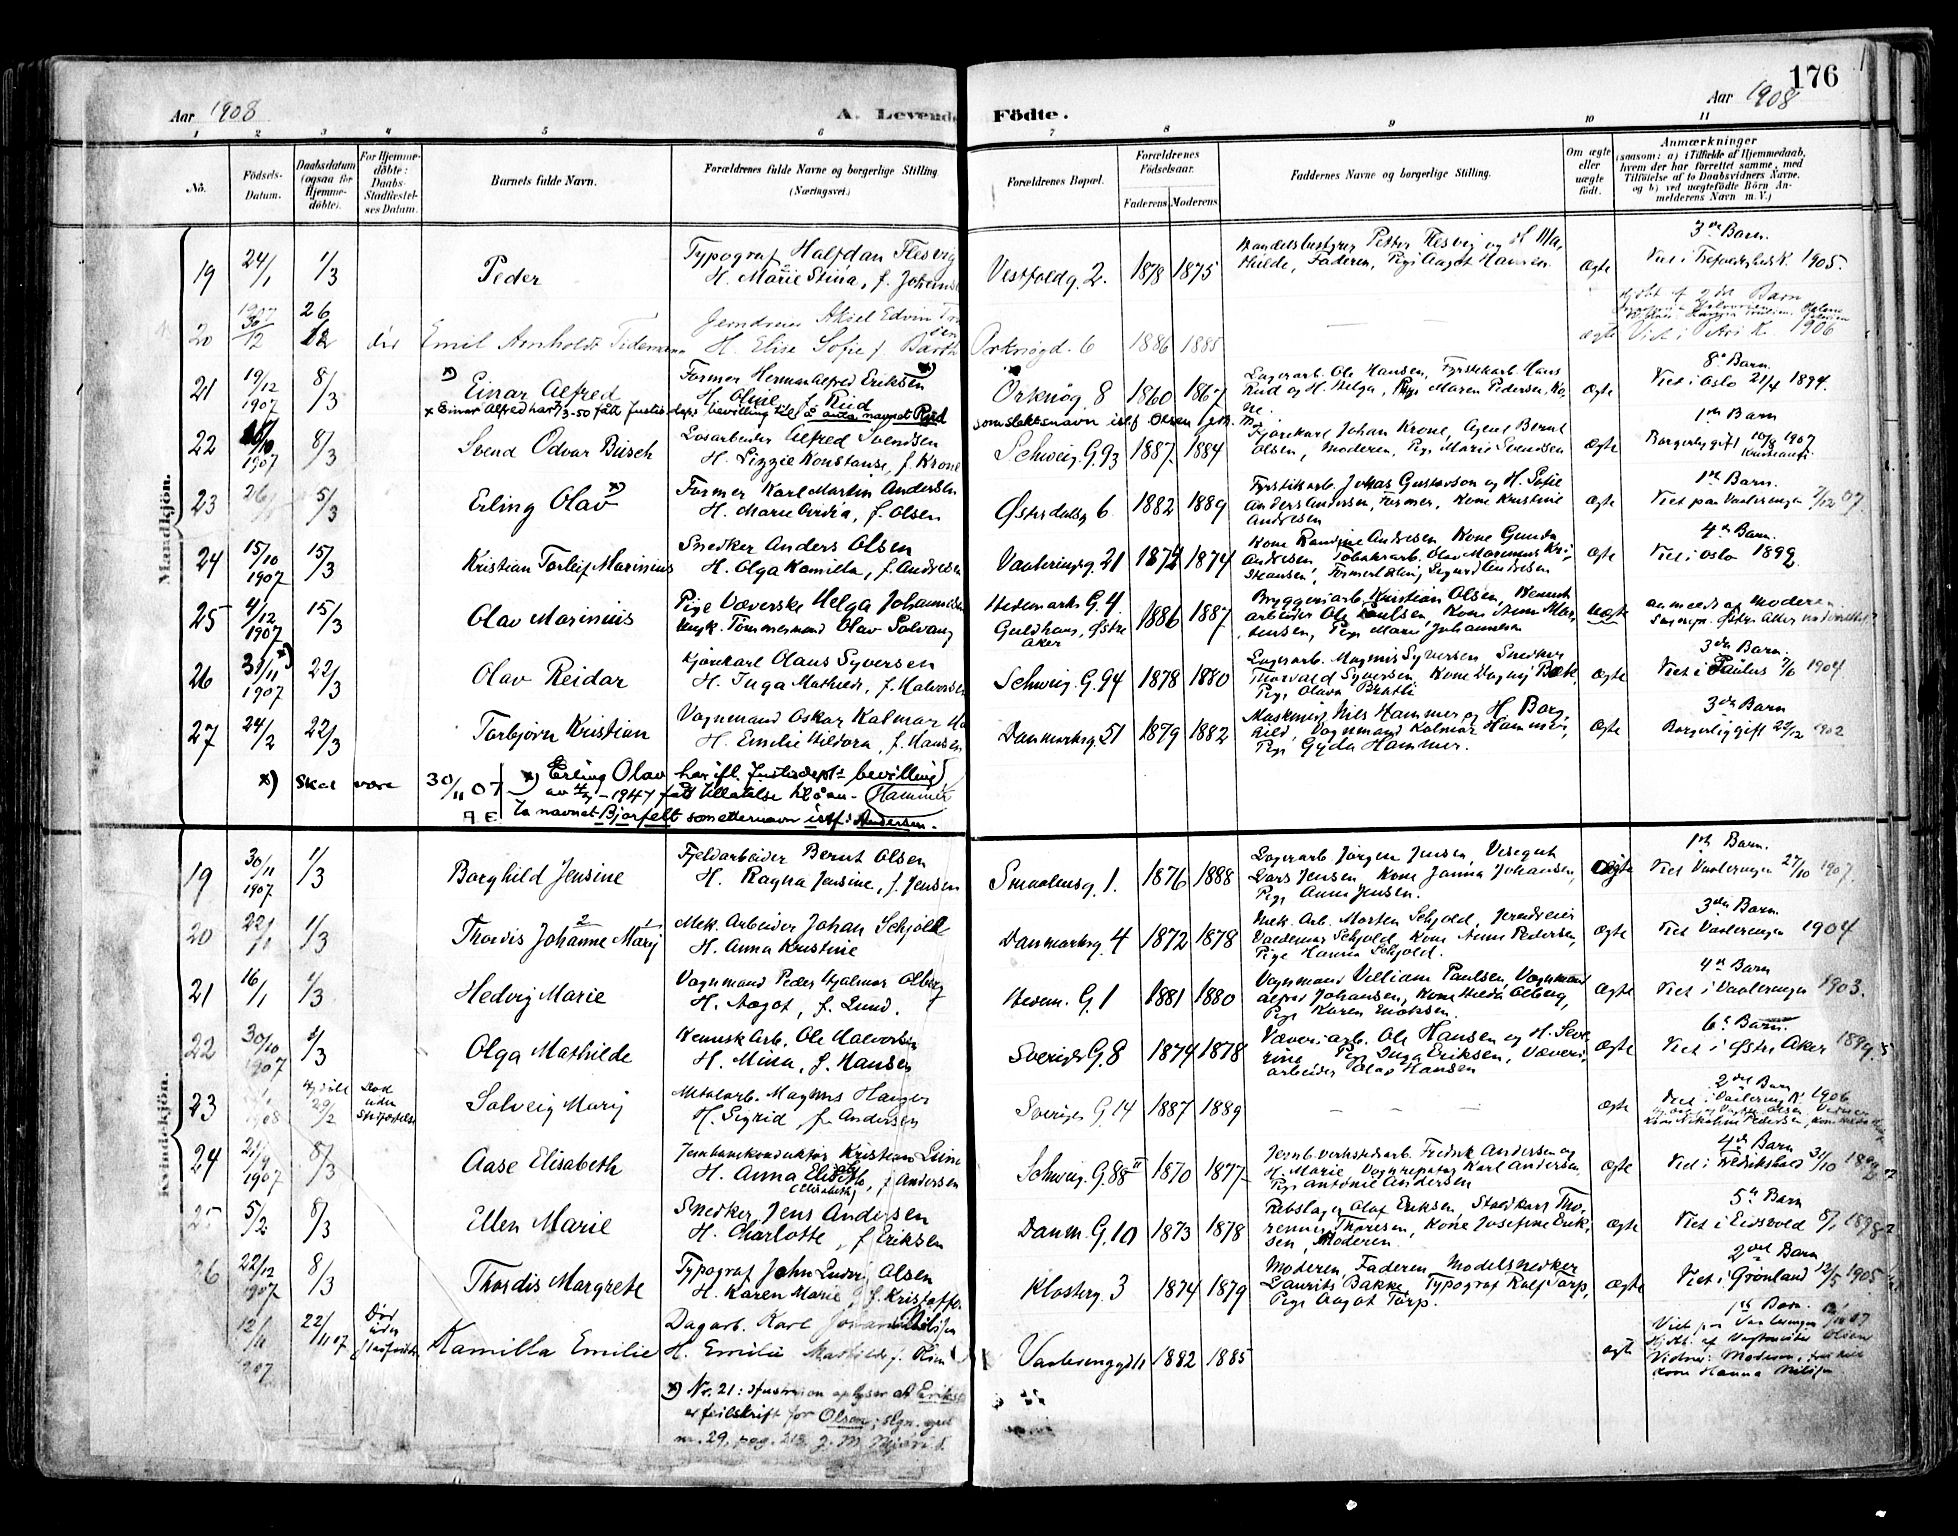 176
Aar 1908
A. Levende
Födte.
Aar 1908
1 2 3 4 5 6 7 8 9 10 11
No.
Födsels-Datum.
Daabsdatum (ogsaa for Hjemme-döbte).
For Hjemme-döbte: Daabs-Stadfæstel-ses Datum.
Barnets fulde Navn.
Forældrenes fulde Navne og borgerlige Stilling. (Næringsvei.)
Forældrenes Bopæl.
Forældrenes Födselsaar.
Faderens. Moderens.
Faddernes Navne og borgerlige Stilling.
Om ægte eller uægte födt.
Anmærkninger
(saasom: a) i Tilfælde af Hjemmedaab,
hvem der har forrettet samme, med
Tilföielse af to Daabsvidners Navne,
og b) ved uægtefödte Börn An-
melderens Navn m. V.)
Mandkjön.
19 24/1 1/3 Peder
Typograf Halfdan Flesvig
H. Marie Stina, f. Johanns
Vestfoldg. 2. 1878 1875
Handelsbestyrer Petter Flesvig og H. Ma-
thilde, Faderen, Pige Aagot Hansen
Ægte
3die Barn.
Viet i Trefoldighedsk. 1905.
20 1907 30/12 26 død Emil Arnholdt Tidemann
Jerndreier Aksel Edvin
H. Elise Sofie f. Barth
Orknøgd. 6 1886 1885
ægte
2det Barn
Viet i Petri K. 1906
21 19/12 1907 8/3 x) Einar Alfred
Former Herman Alfred Eriksen x)
H. Oline, f. Rud
Orknög 8 1860 1867
Lagerarb. Ole Hansen, Fyrstikarb. Hans
Rud og H. Helga, Pige Maren Pedersen, Ko-
ne.
Ægte
8de Barn.
Viet i Oslo 21/4 1894.
x Einar Alfred har 7/3-50 fått Justisdeps bevilling til å anta navnet Rud
som slektsnavn istf Olsen
22 1907 8/3 Svend Odvar Büsch
Losarbeider Alfred Svendsen
H. Lizzie Konstanse, f. Krone
Schweig. G. 93 1887. 1884
Kjørekarl Johan Krone, Agent Bernt
Olsen, Moderen, Pige Marie Svendsen
Ægte
1ste Barn
Borgerlig gift 10/9 1907
Kristiania
23 5/3 Erling Olav x)
Former Karl Martin Andersen
H. Marie Ovidia, f. Olsen
Østerdalsg 6. 1882 1889
Fyrstikarb. Johas Gustavson og H. Sofie
Anders Andersen, Former, Kone Kristine
Andresen
Ægte
1ste Barn.
Viet paa Vaalerengen 7/12 07.
24 15/10 1907 15/3 Kristian Torleif Marinius
Snedker Anders Olsen
H. Olga Kamilla, f. Andresen
Vaalerengg. 21 1872 1874
Kone Randine Andresen Kone Gunda
Andresen, Tobaksarb. Olav Marinius Kri-
stiansen, Formerlærling Sigurd Andresen
Ægte
4de Barn.
Viet i Oslo 1892
25 4/12 1907 15/3 Olav Marinius
Pige Væverske Helga Johannesen
Ungk. Tømmermand Olav Solvang
Hedemarks G. 4.
Guldhaug, Østre
Aker
1886 1887
Bryggeriarb. Kristian Olsen, Kemisk
arbeider Ole Paulsen Kone Anna Mar-
tensen, Pige Marie Johannesen
Uægte
anmeldt af Moderen
26 31/11 x) 1907 22/3 Olav Reidar
Kjørekarl Olaus Syversen
H. Inga Mathilde, f. Halvorsen
Schweig. G. 94 1878 1880
Lagerarb. Magnus Syversen Snedker
Thorvald Syversen, Kone Dagny Bæk,
Pige Olava Bratli
Ægte
3die Barn.
Viet i Paulus 7/6 1904
27 24/2 22/3 Torbjørn Kristian
Vognmand Oskar Kalmar Ha
H. Emilie Hildora, f. Hansen
Danmarksg. 51 1879 1882
Maskinist Nils Hammer og H. Borg-
hild, Vognmand Kalmar Hammer,
Pige Gyda Hammer.
Ægte
3die Barn
Borgerlig gift 29/12 1902
x) Skal være 30/11 07 A E
x) Erling Olav har ifl. Justisdepts bevilling
av 4/7-1947 fått tillatelse til å an- (Hammer
ta navnet Bjarfelt som etternavn istf: Andersen.
Kvindekjön.
19 30/11 1907 1/3 Borghild Jensine
Fjeldarbeider Bernt Olsen
H. Ragna Jensine, f. Jensen
Smaalensg. 1. 1876 1888
Lagerarb Jörgen Jensen, Visegut
Lars Jensen, Kone Janna Johansen,
Pige Anna Jensen.
Ægte
1ste Barn.
Viet Vaalerengen 27/10 1907.
20 22/1 1/3 Thordis Johanne Marij
Mek. Arbeider Johan Schjold
H. Anna Kristine
Danmarksg. 4 1872 1878
Mek. Arb. Morten Schjold, Jerndreier
Valdemar Schjold, Kone Anna Pedersen,
Pige Hanna Schjold.
Ægte
3die Barn.
Viet Vaalerengen 1904
21 16/1 1/3 Hedvig Marie
Vognmand Peder Hjalmar Olberg
H. Aagot, f. Lund.
Hedem. G. 1 1881 1880
Vognmand Villiam Paulsen, Vognmand
Alfred Johansen, Kone Hilda Olberg,
Pige Karen Enoksen.
Ægte
4de Barn
Viet i Vaalerengen 1903.
22 30/10 1907 1/3 Olga Mathilde
Kemisk Arb. Ole Halvorsen
H. Mina, f. Hansen
Sveriges G. 8 1874 1878
Væveriarb. Ole Hansen og H. Seve-
rine Pige Inga Eriksen, Væveri-
arbeider Olav Hansen
Ægte
6te Barn.
Viet i Østre Aker 1894.
23 1908 29/2 Død uden Stadfæstelse Solveig Marij
Metalarb. Magnus Hanger
H. Sigrid, f. Andersen
Sveriges G. 14 1887 1889
Ægte
2det Barn
Viet i Vaalereng K. 1906
24 1907 8/3 Aase Elisabeth
Jernbanekonduktør Kristian Lund
H. Anna Elisabeth, f Andersen
(Elisabeth)
Schweig. G. 88 II 1870 1877
Jernb. verkstedarb. Fredrik Andersen og
H. Marie, Vognreparatør Karl Andersen,
Pige Antonie Andersen
Ægte
4de Barn
Viet i Fredrikshald
25 5/2 8/3 Ellen Marie
Snedker Jens Andersen
H. Charlotte, f Eriksen
Danm. G. 10 1873 1878
Rebslager Olaf Eriksen, Stadkarl Tho-
rennius Thoresen, Kone Josefine Erik-
sen, Moderen.
Ægte
5te Barn
Viet i Eidsvold 8/1 1898
26 22/12 1907 8/3 Thordis Margrete
Typograf John Ludvig Olsen
H. Karen Marie, f. Kristoffer
Klosterg. 3 1874 1879
Moderen, Faderen Modelsnedker
Laurits Bakke, Typograf Ralf Tarp,
Pige Aagot Tarp.
Ægte
2det Barn
Viet i Grønland 12/5 1905
12/11 1907 22/11 07 Død uden Stadfæstelse Kamilla Emilie
Dagarb. Karl Johan Nilsen
H. Emilie Mathilde f.
Vaalerenggd 1882 1885
ægt
1ste Barn.
Viet paa Vaalerengen
Hjdbt. af Vagtmester Olsen
Vidner: Moderen,
Kone Hanna Nilsen
x) Nr. 21: Hustruen oplyser at Eriksen
er feilskrift for Olsen;
nr. 29, pag. 213